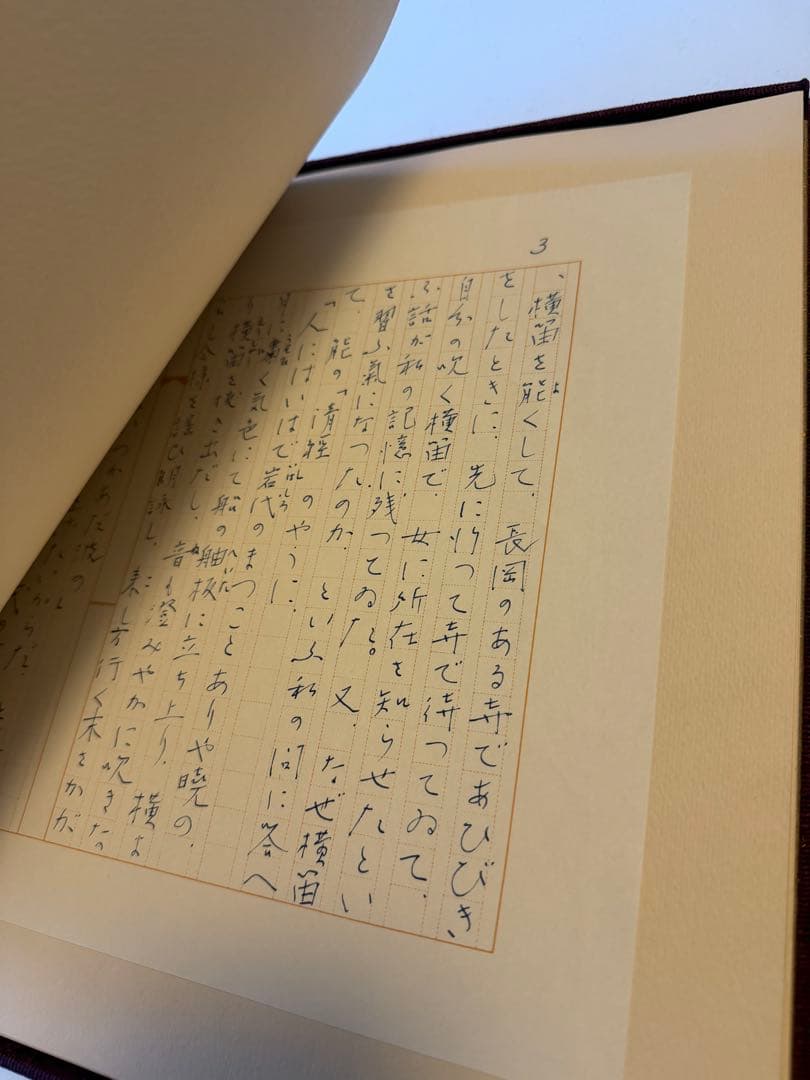 3
、横笛を能くして、長岡のある寺であひびき
よ
をしたときに、先に行つて寺で待つてゐて、
自分の吹く横笛で、女に所在を知らせたとい
ふ話が私の記憶に残つてゐた。又、なぜ横笛
を習ふ氣になつたのか、といふ私の問に答へ
て、能の「清経」のやうに、
「人にはいはで岩代のまつことありや曉の、
いはしろ
く気色にて船の舳板に立ち上り、
横笛を抜き出だし、音も澄みやかに吹きな
今様を謡ひ朗詠し、来し方行く末をかが